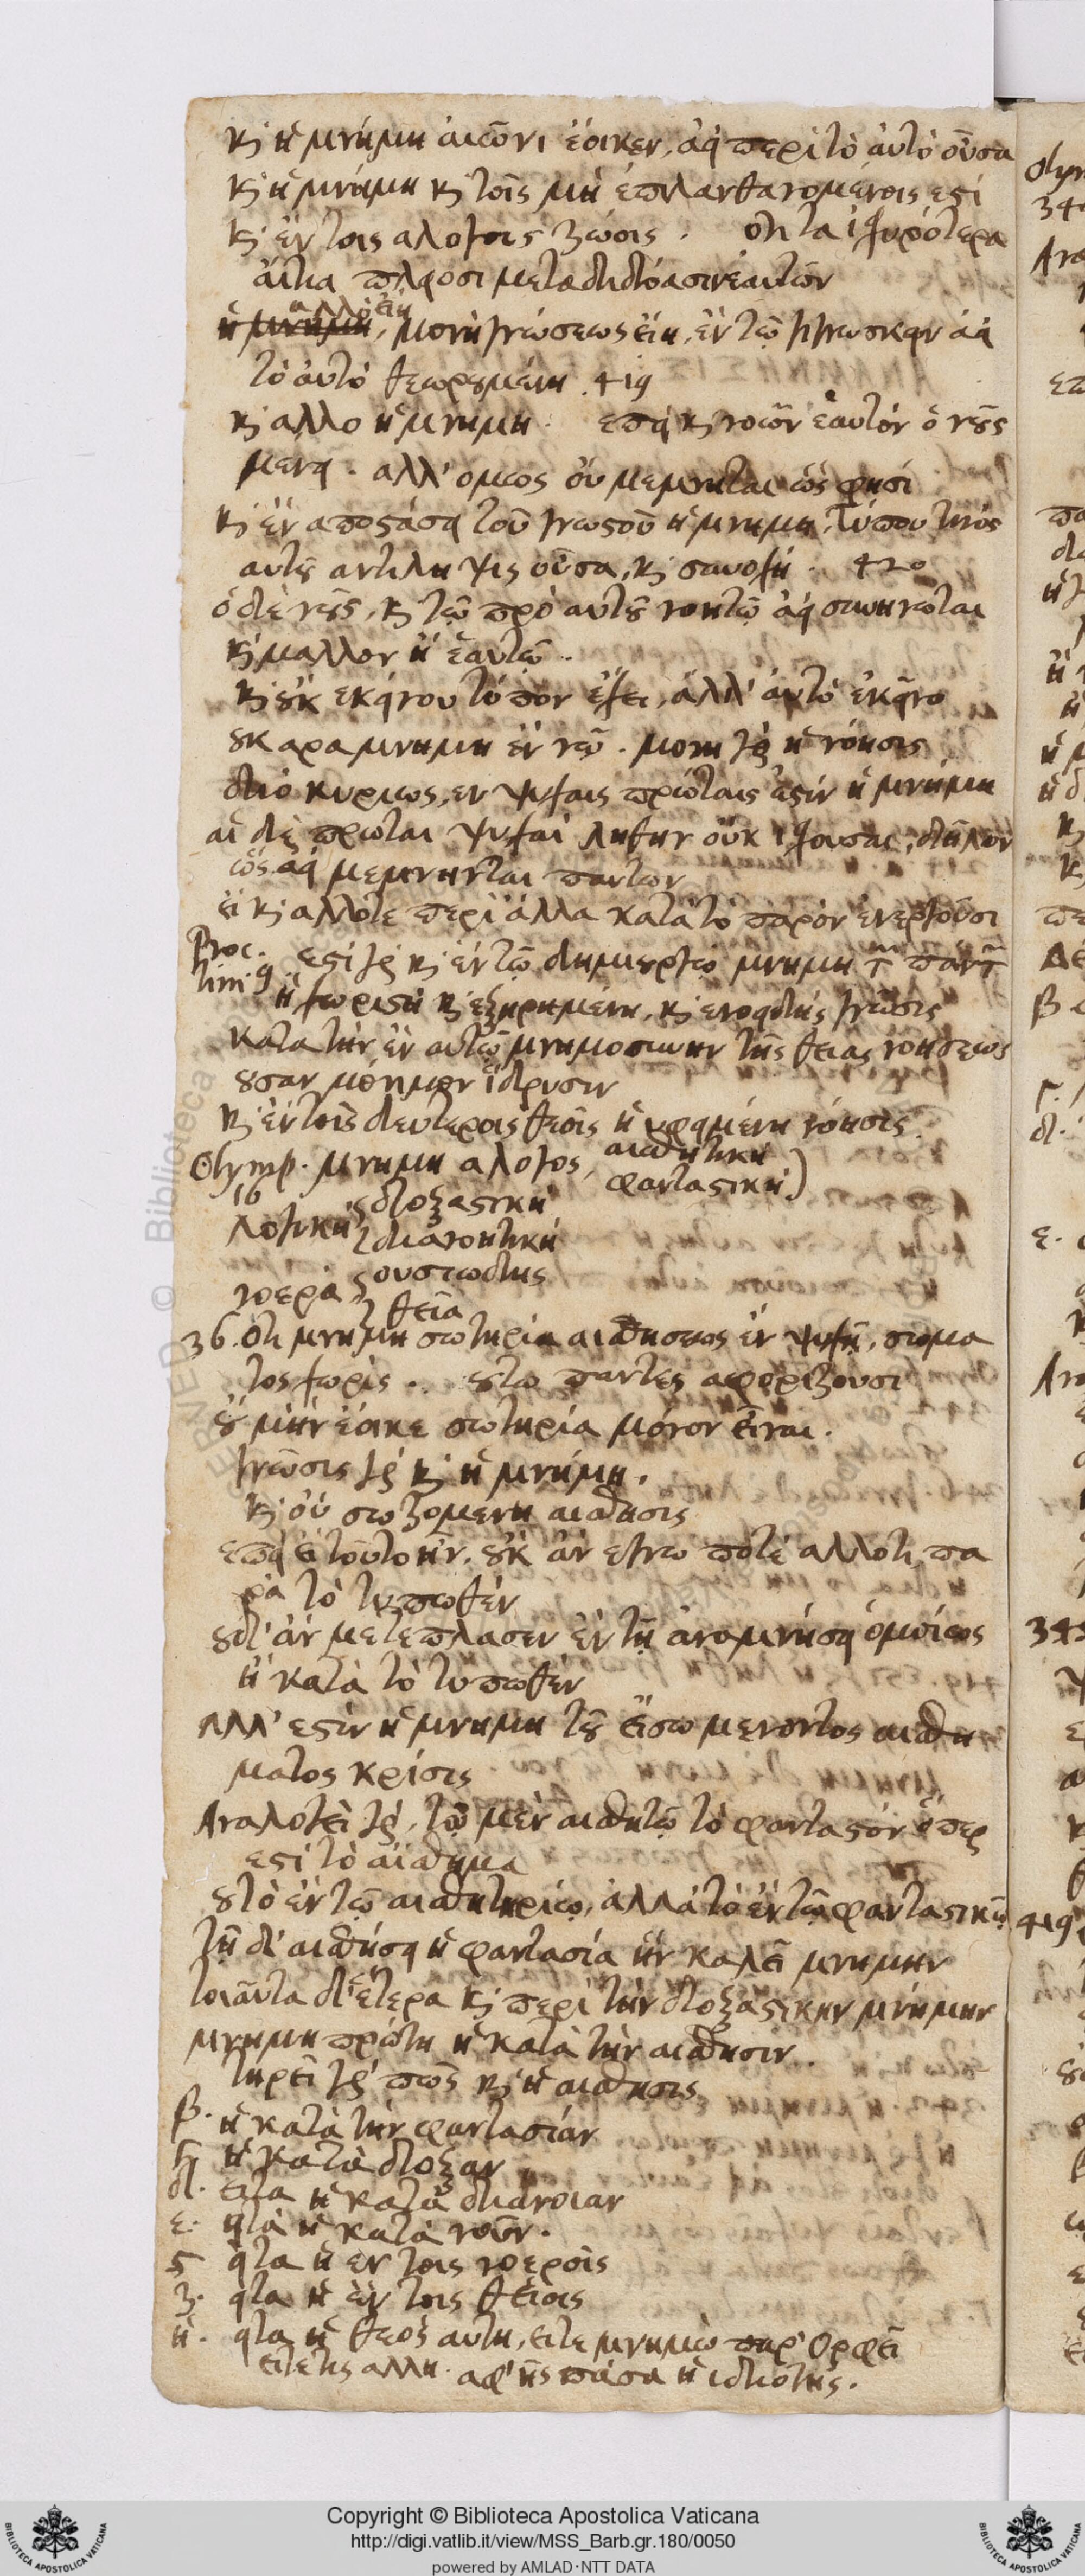 κ̀ ἡ μνήμη αἰῶνι ἔοικεν, ἀεὶ περὶ τὸ ἀυτὸ οὖσα
κ̀ ἡ μνήμη κ̀ τοῖς μὴ ἐπιλανθανομένοις εστί
κ̀ ἐν τοις αλογοις ζώοις. ὅτι τα ἰσχυρότερα
ἀίτια πλείοσι μεταδιδόασιν ἑαυτῶν
ἀλλ' εἴη
ἡ μνήμη, μονὴ γνώσεως εἴη, ἐν τῷ γιγνωσκειν ἀεὶ
τὸ ἀυτὸ θεωρουμένη. 419
κ̀ αλλο ἡ μνημη. επεὶ κ̀ νοῶν ἑαυτὸν ὁ νοῦς
μενει. αλλ' ομως οὐ μεμνηται ὡς φησί
κ̀ ἐν αποστάσει τοῦ γνωστοῦ ἡ μνημη, τύπου τινός
αυτοῦ αντιληψις οὖσα, κ̀ συνοχή. 420
ὁ δὲ νοῦς, κ̀ τῷ πρὸ αυτοῦ νοητῷ ἀεὶ συνηνωται
κ̀ μαλλον ἢ ἑαυτῷ.
κ̀ οὐκ εκείνου τύπον ἔχει, ἀλλ' ἀυτὸ ἐκεῖνο
ουκ αρα μνημη ἐν νῷ. μονη γὰρ ἡ νόησις
διὸ κυριως, εν ψυχαις πρώταις ἐστίν ἡ μνήμη
αἱ δὲ πρωται ψυχαὶ ληθην οὐκ ισχουσαι, δῆλον
ὡς ἀεὶ μεμνηνται παντων
εἰ κ̀ αλλότε περὶ ἄλλα κατὰ τὸ παρὸν ἐνεργοῦσι
Proc. εστί γὰρ κ̀ ἐν τῷ δημιουργῷ μνημη τ͂ παντ͂
tim. 9 ἡ χωριστὴ κ̀ εξηρημένη, κ̀ ενοειδὴς γνῶσις
κατα τὴν ἐν αυτῷ μνημοσυνην τῆς θείας νοήσεως
ουσαν μόνιμον ἵδρυσιν
κ̀ ἐν τοῖς δευτεροις θεοῖς ἡ υφειμένη νόησις
Olymp. μνημη αλογος, αισθητικη
16 φανταστική)
λογικὴ δοξαστικὴ
διανοητικὴ
νοερὰ ουσιωδης
θεῖα
36. ὅτι μνημη σωτηρία αισθησεως ἐν ψυχῇ, σωμα
τος χωρὶς. ουτω παντες αφοριζουσι
οὐ μὴν ἔοικε σωτηρία μόνον εἶναι.
γνῶσις γὰρ κ̀ ἡ μνήμη.
κ̀ οὐ σωζομενη αισθησις
επεὶ εἰ τοῦτο ἦν, οὐκ ἂν εγνω ποτὲ αλλοτι πα
ρὰ τὸ τυπωθέν
ουδ' ἂν μετεπλασεν ἐν τῇ ἀναμνήσει ὁμοίως
ἢ κατὰ τὸ τυπωθέν
Αλλ' εστὶν ἡ μνημη τοῦ εἴσω μενοντος αισθη
ματος κρίσις
Αναλογεῖ γὰρ, τῷ μὲν αισθητῷ τὸ φανταστόν ὅπερ
εστί τὸ αἴσθημα
οὐ τὸ ἐν τῷ αισθητηρίῳ, ἀλλὰ τὸ ἐν τῷ φανταστικῷ
τῇ δ' αισθήσει ἡ φαντασία ἣν καλεῖ μνημην
τοιαῦτα δ' ἕτερα κ̀ περὶ τὴν δοξαστικην μνήμην
μνημη πρώτη ἡ κατὰ τὴν αισθησιν.
τηρεῖ γὰρ πως κ̀ ἡ αισθησις
β. ἡ κατὰ τὴν φαντασίαν
γ ἡ κατὰ δοξαν
δ. εῖτα ἡ κατὰ διανοιαν
ε. εἶτα ἡ κατὰ νοῦν.
ϛ εἶτα ἡ εν τοις νοεροῖς
ζ. εἶτα ἡ ἐν τοις θείοις
η. εἶτα ἡ θεὸς αυτη, ειτε μνημὼ παρ' Ορφεῖ
ειτε τις αλλη. αφ' ἧς πάσα ἡ ιδιοτης.
Copyright © Biblioteca Apostolica Vaticana
http://digi.vatlib.it/view/MSS_Barb.gr.180/0050
powered by AMLAD·NTT DATA